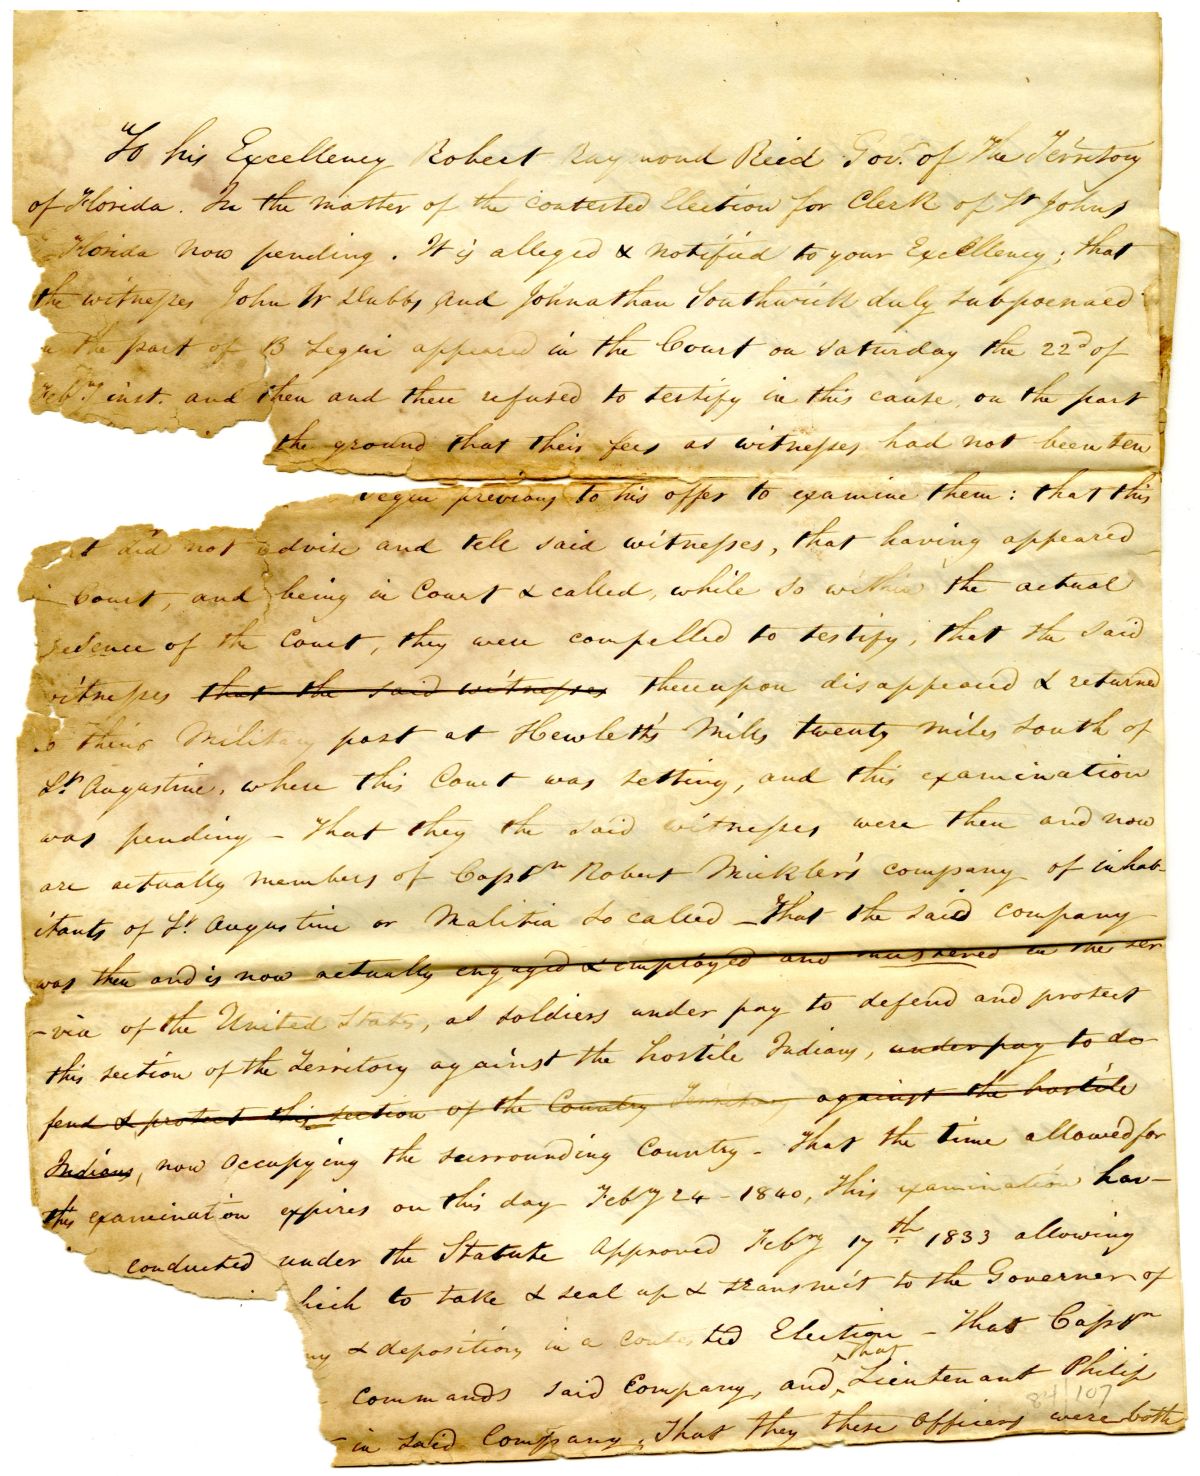 "To his Excellency Robert Raymond Reid Gov. of The Territory
of Florida. In the matter of the contested Election for Clerk of St Johns
Florida now pending. It is alleged & notified to your Excellency; that
the witnesses John W Dubbs and Johnathan Southwick duly subpoenaed
the part of B Segui appeared in the Court on Saturday the 22d of
Feby inst. and then and there refused to testify in this cause, on the part
the ground that their fees as witnesses had not been ten
Segui previous to his offer to examine them: that this
rt did not advise and tell said witnesses, that having appeared
Court, and being in Court & called, while so within the actual
resence of the Court, they were compelled to testify; that the said
witnesses that the said witnesses thereupon disappeared & returned
to their Military post at Hewlett's Mills twenty miles South of
St. Augustine, where this Court was setting, and this examination
was pending - That they the said witnesses were then and now
are actually members of Captn Robert Mickler's company of inhab-
itants of St. Augustine or Malitia so called - That the said company
was then and is now actually engaged & employed and mustered in the ser
-vice of the United States, as soldiers under pay to defend and protect
this section of the Territory against the hostile Indians, under pay to de
fend & protect this section of the Country Territory against the hostile
Indians, now occupying the surrounding Country - That the time allowed for
this examination expires on this day Feby 24 - 1840, This examination hav-
conducted under the Statute approved Feby 17th. 1833 allowing
hich to take & seal up & transmit to the Governer of
ny & deposition in a contested Election - That Captn
commands said Company, and, that Lieutenant Philip
in said Company, That they these officers were both
84/107